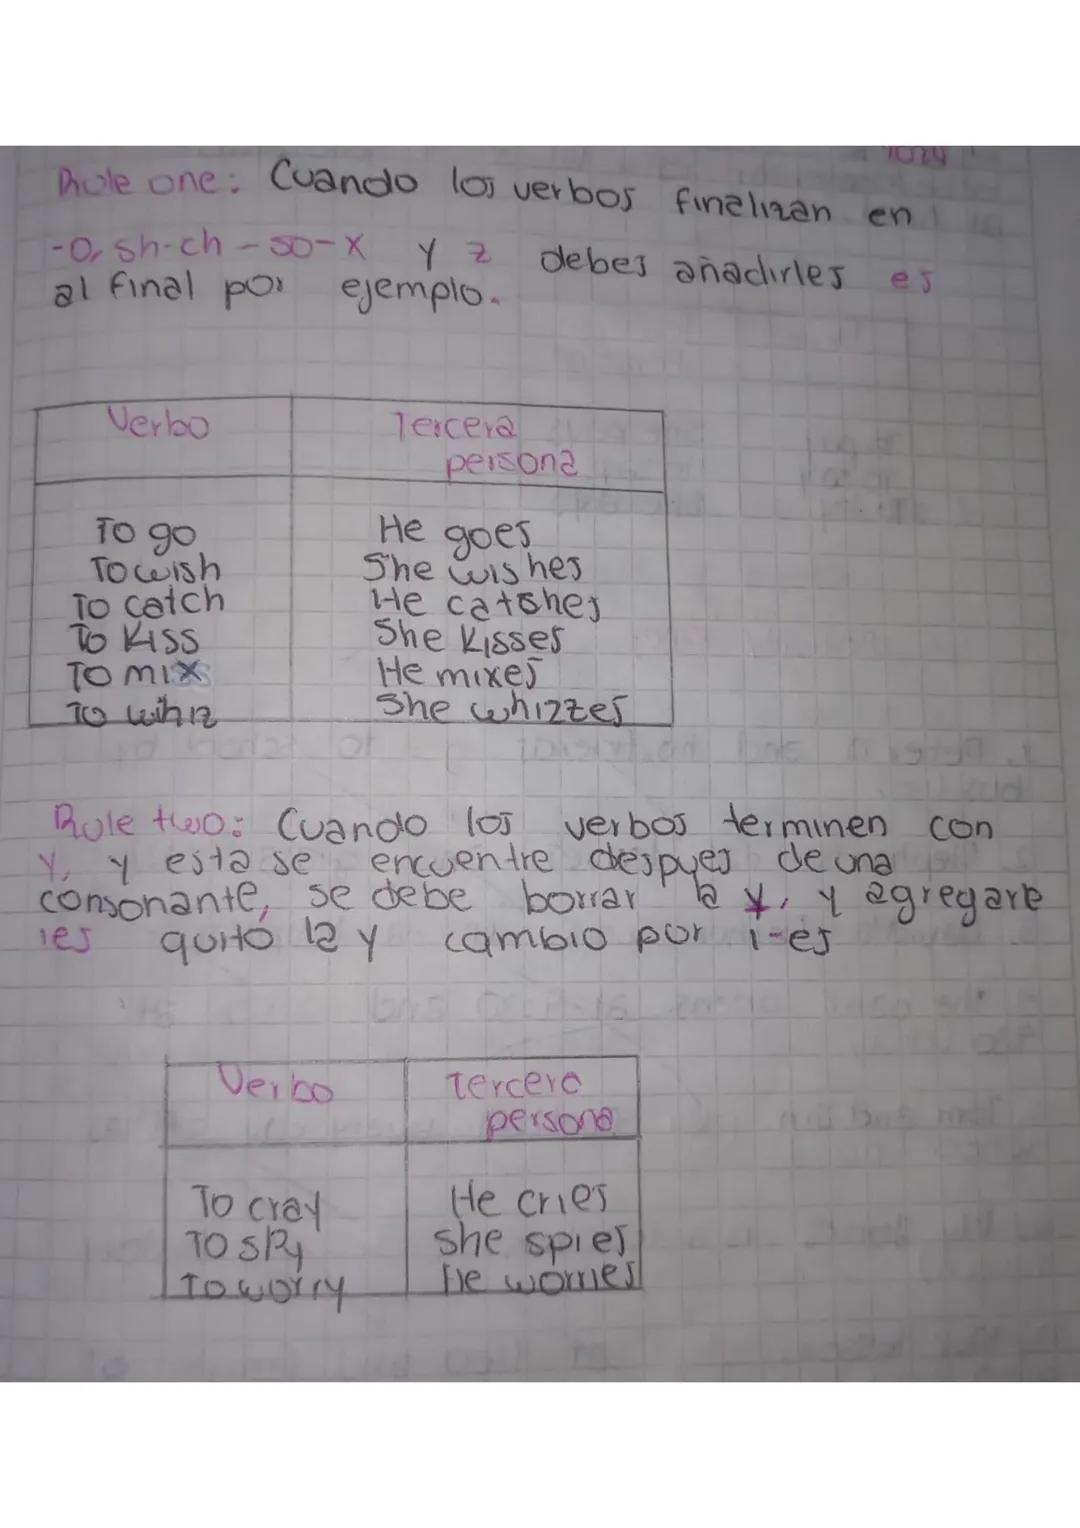 Rule one: Cuando los verbos finalizan en
-o, sh-ch-so-x y z debes añadirles es
al final por ejemplo.
Verbo Tercera
persona
To go He goes
To wish She wishes
To catch He catches
To kiss She kisses
To mix He mixes
To whiz She whizzes
Rule two: Cuando los verbos terminen con
y, y esta se encuentre despues de una
consonante, se debe borrar la y, y agregare
ies quito la y cambio por i-es
Verbo Tercera
persona
To cray He cries
To spy She spies
To worry He worries